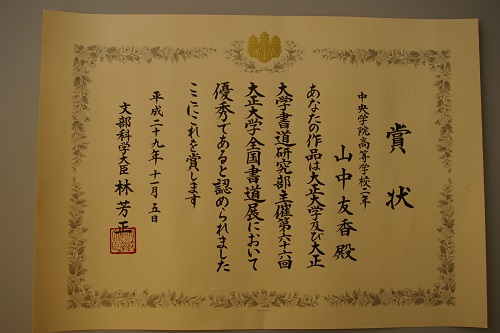 賞状
中央学院高等学校二年
山中友香殿
あなたの作品は大正大学及び大正
大学書道研究部主催第六十六回
大正大学全国書道展において
優秀であると認められました
ここにこれを賞します
平成二十九年十一月五日
文部科学大臣 林芳正